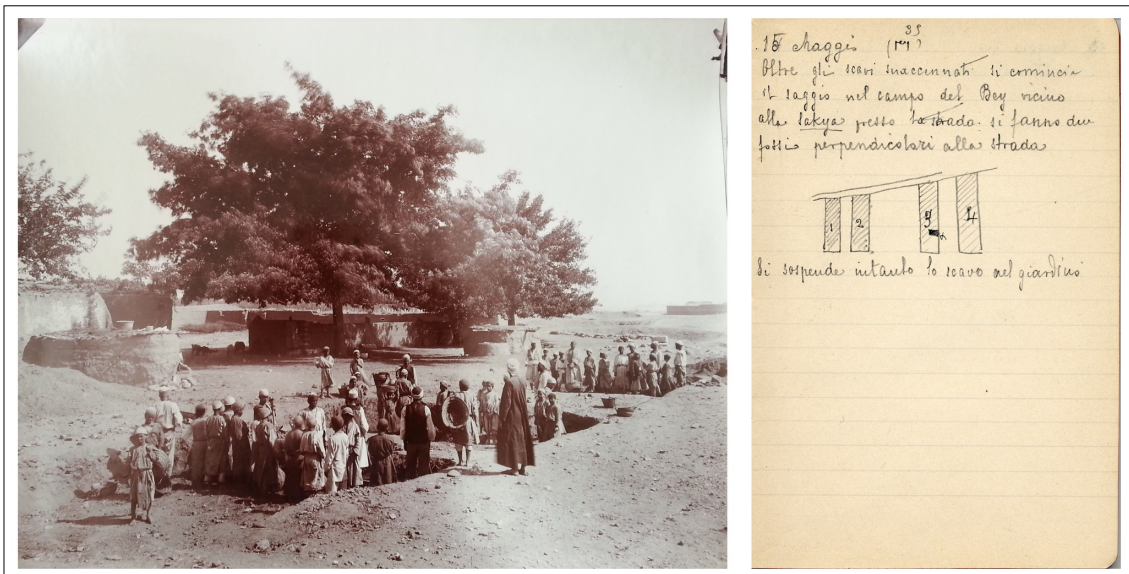 15 Maggio (17)
35
Oltre gli scavi suaccennati si comincia
il saggio nel campo del Bey vicino
alla sakya presso la strada. si fanno due
fossi perpendicolari alla strada
1 2 3 4
Si sospende intanto lo scavo nel giardino